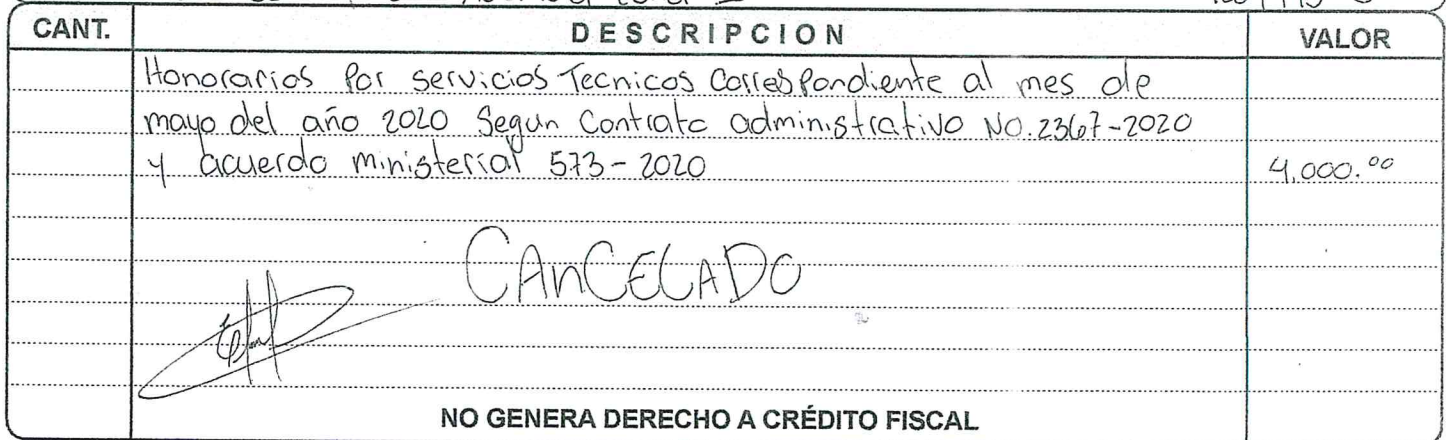 CANT. DESCRIPCION VALOR
Honorarios por servicios Tecnicos Correspondiente al mes de
mayo del año 2020 Segun Contrato administrativo No. 2367-2020
y acuerdo ministerial 573-2020 4,000.00
CAnCELADO
NO GENERA DERECHO A CRÉDITO FISCAL